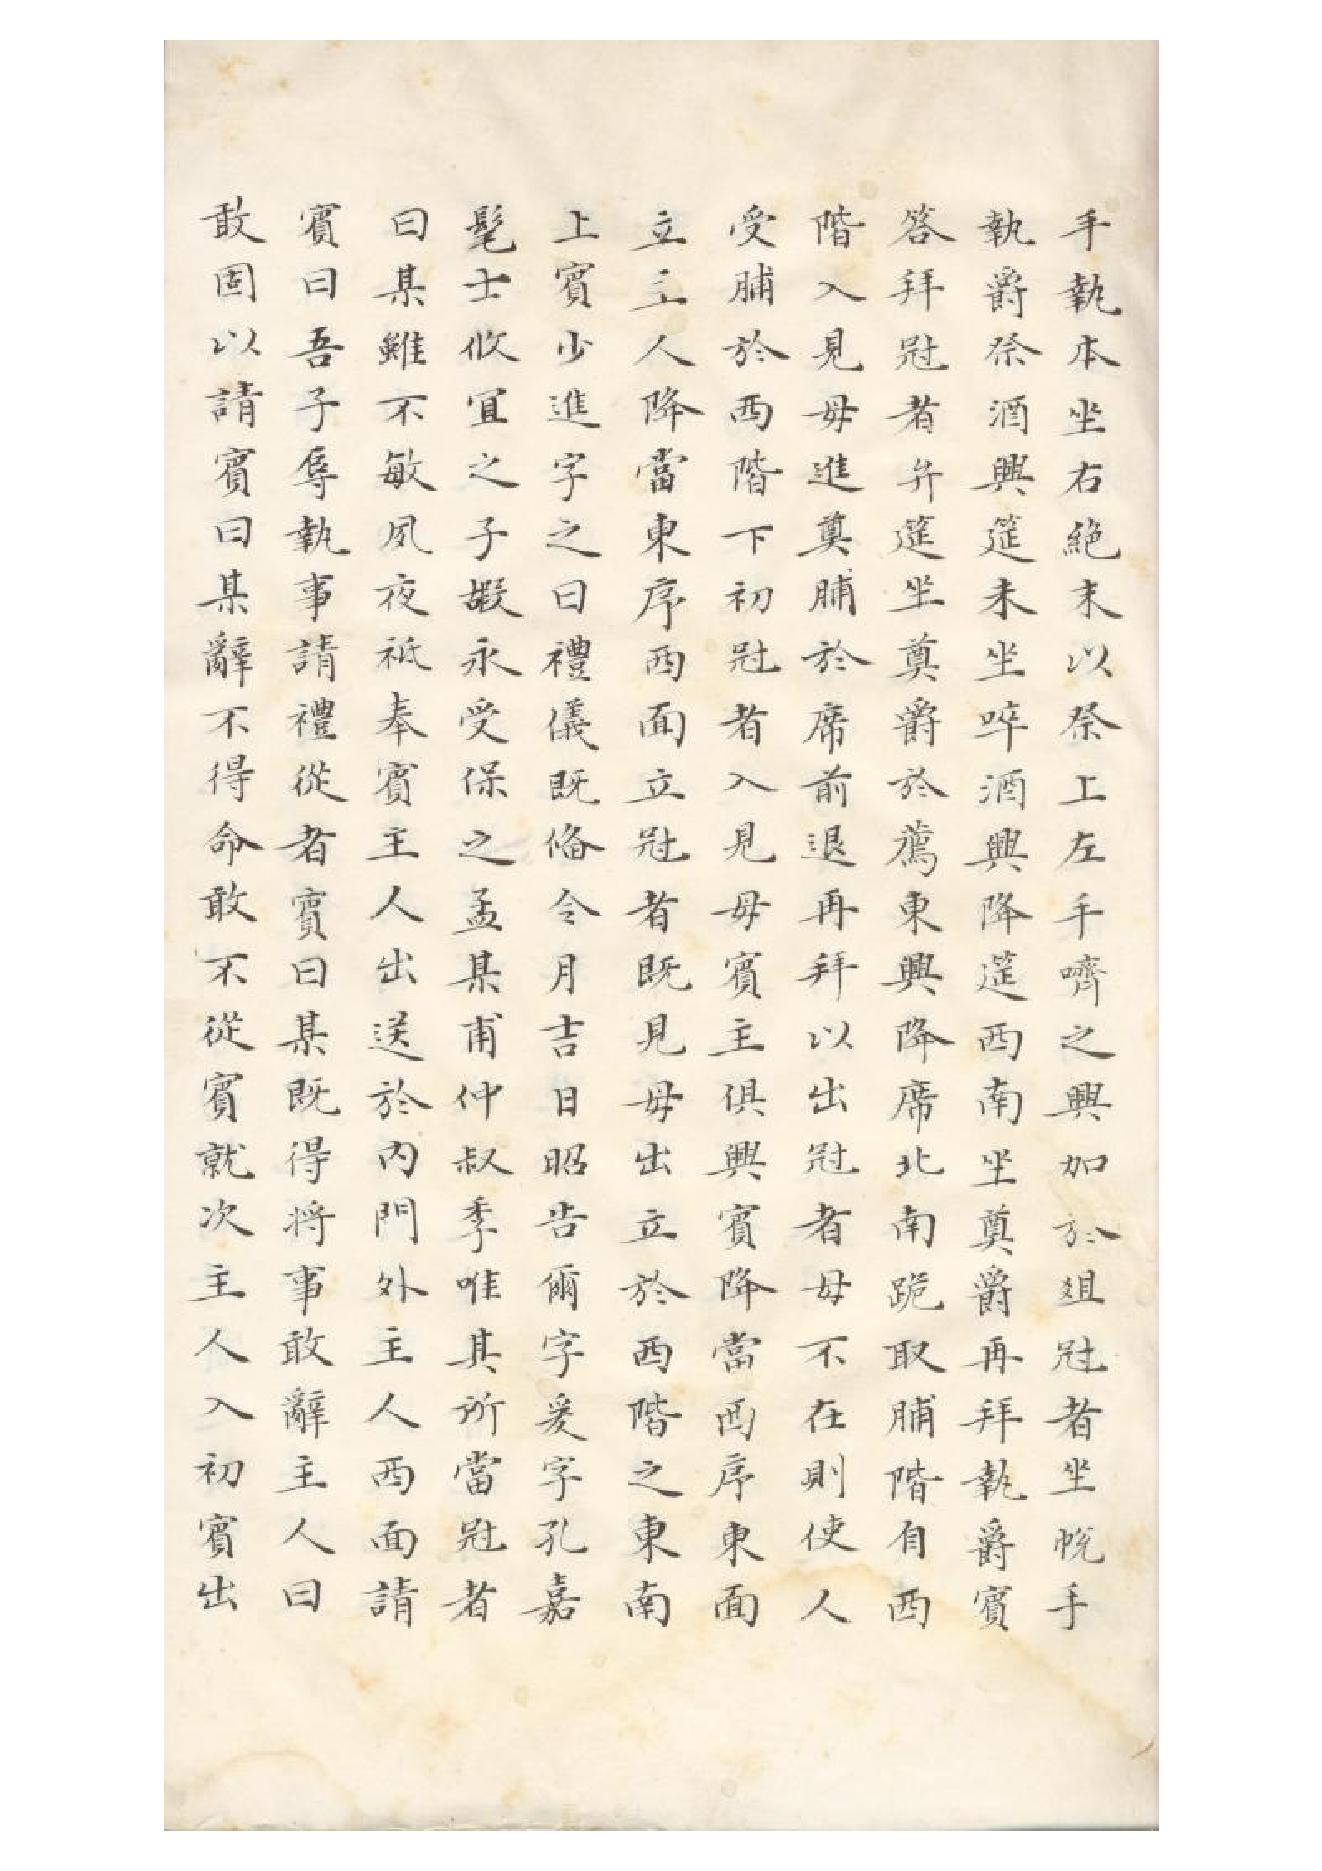 手執本坐右絶末以祭上左手嚌之興加於俎冠者坐帨手
執爵祭酒興筵末坐啐酒興降筵西南坐奠爵再拜執爵賓
答拜冠者升筵坐奠爵於薦東興降席北南跪取脯階自西
階入見母進奠脯於席前退再拜以出冠者母不在則使人
受脯於西階下初冠者入見母賓主俱興賓降當西序東面
立主人降當東序西面立冠者既見母出立於西階之東南
上賓少進字之曰禮儀既俻令月吉日昭告爾字爰字孔嘉
髦士攸冝之子嘏永受保之孟某甫仲叔季唯其所當冠者
曰某雖不敏夙夜祗奉賓主人出送於內門外主人西面請
賓曰吾子辱執事請禮從者賓曰某既得将事敢辭主人曰
敢固以請賓曰某辭不得命敢不從賓就次主人入初賓出